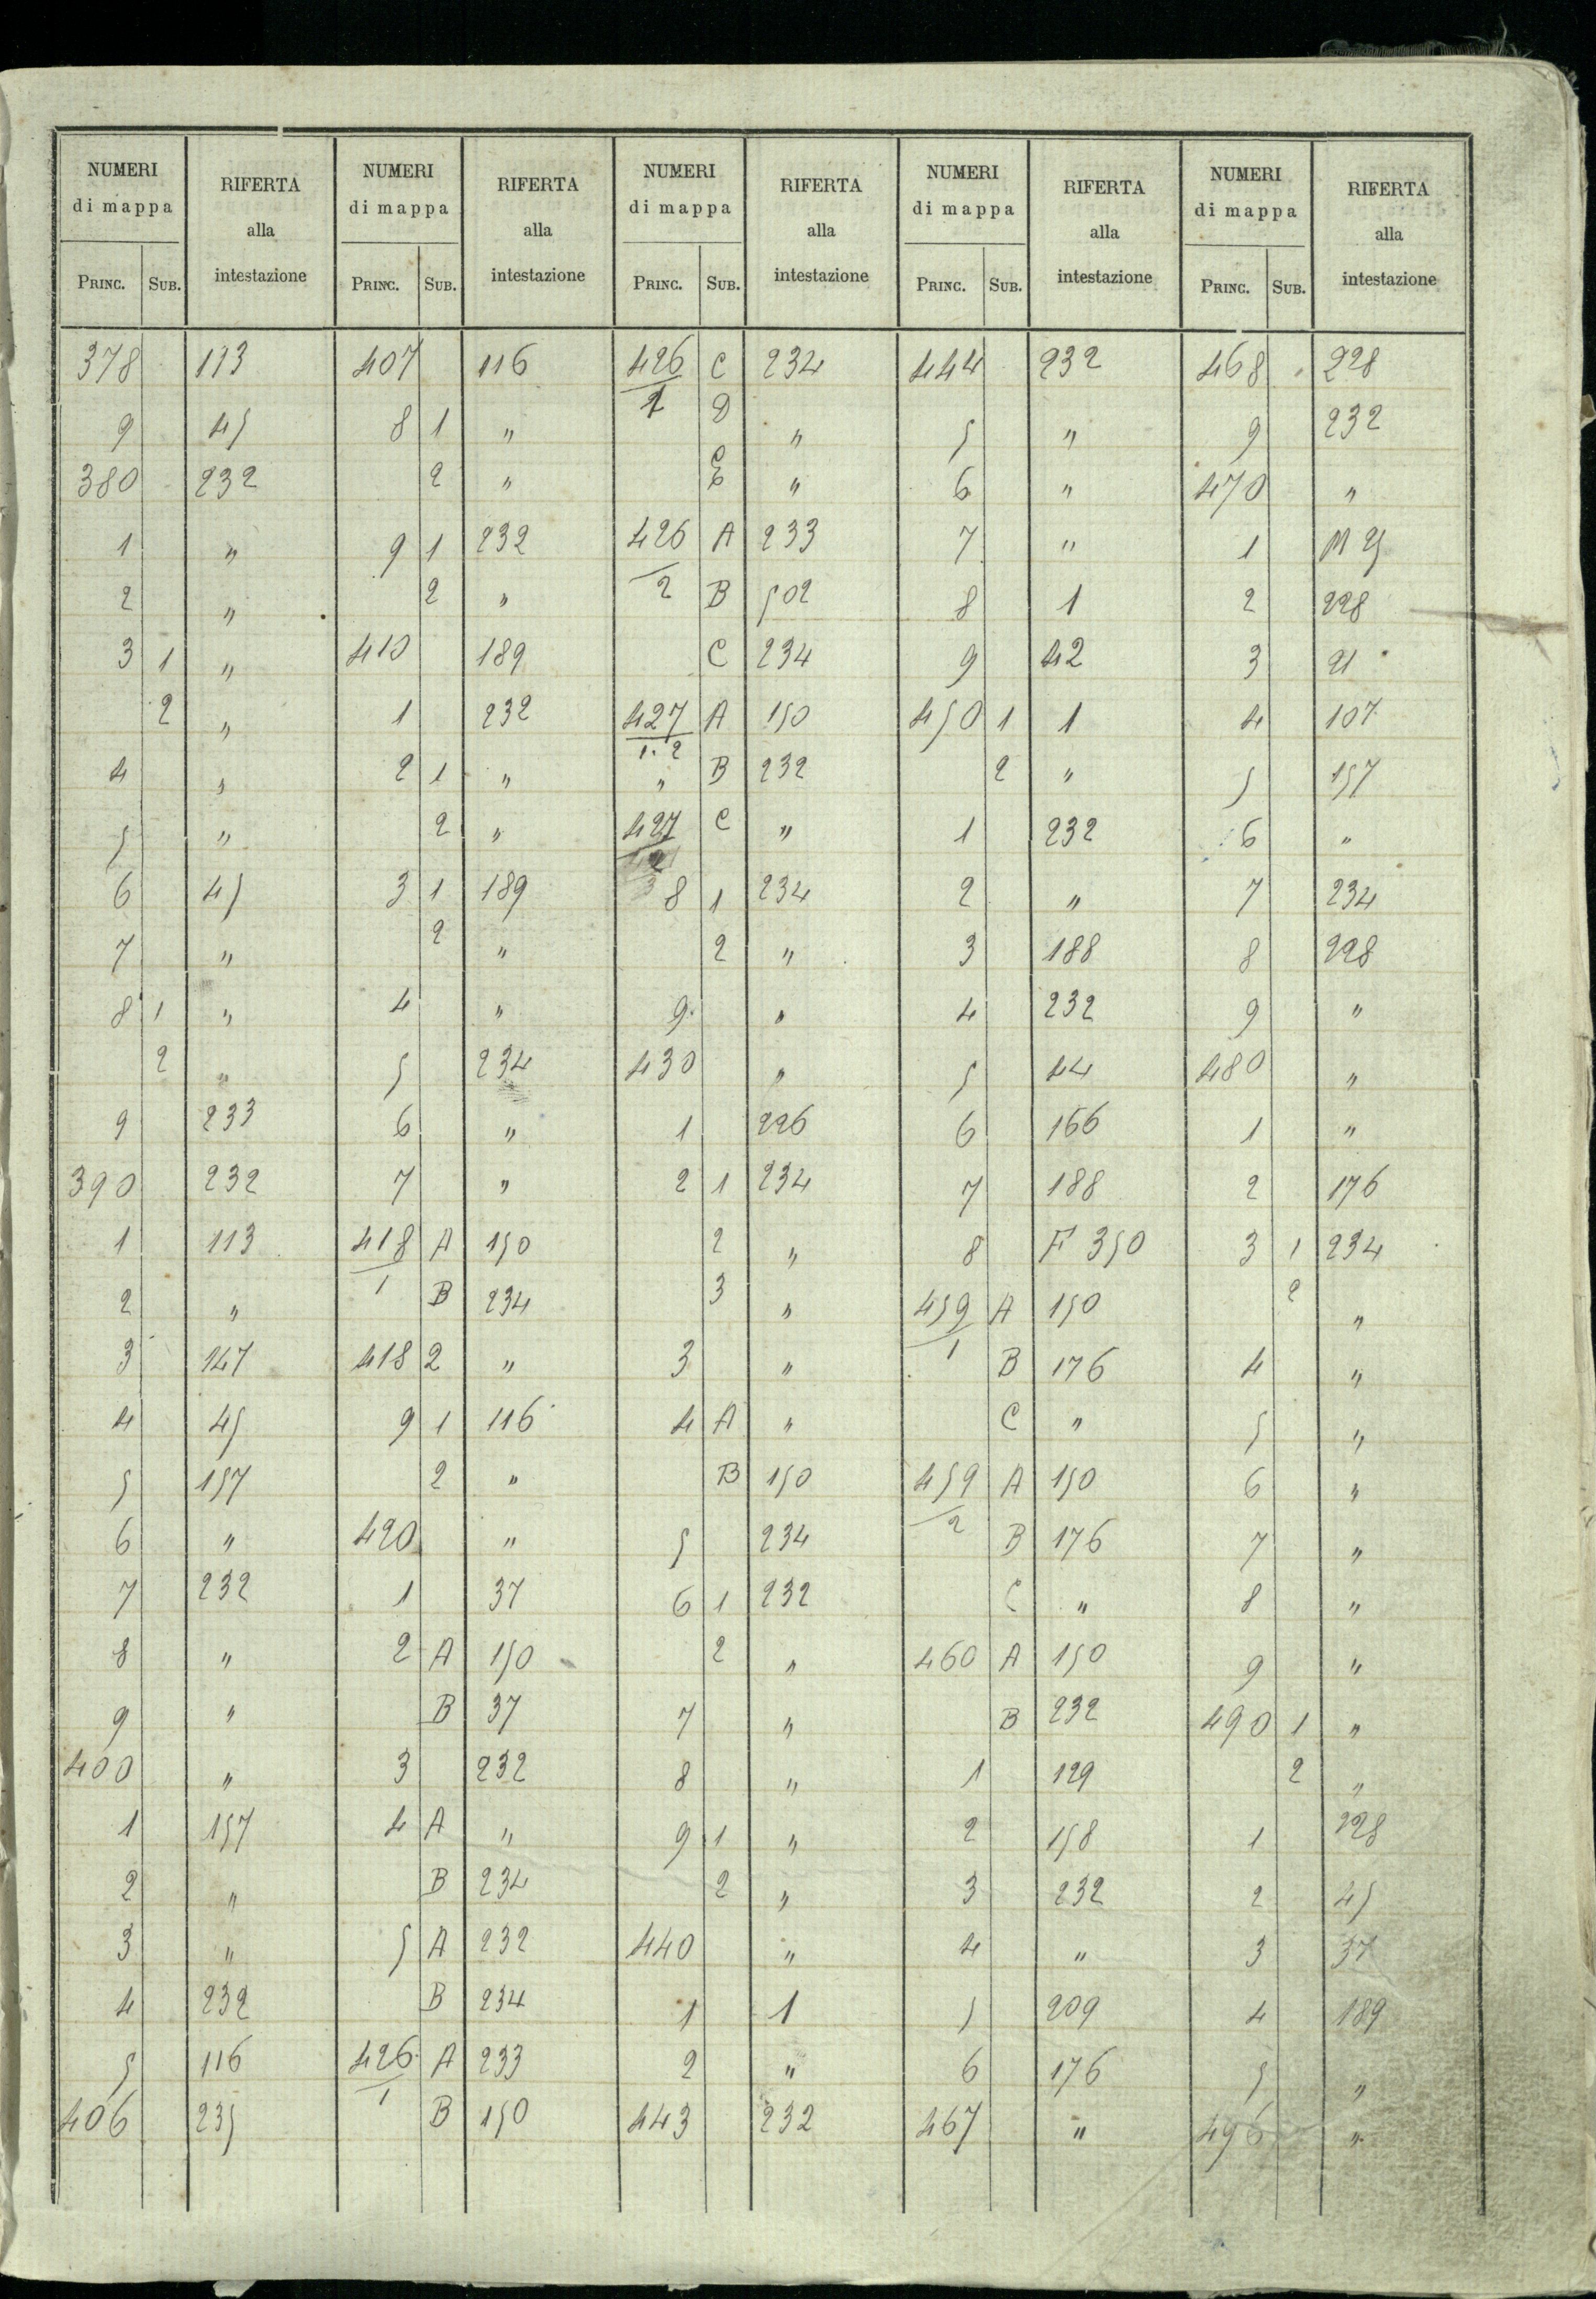 NUMERI RIFERTA NUMERI RIFERTA NUMERI RIFERTA NUMERI RIFERTA NUMERI RIFERTA
di mappa alla di mappa alla di mappa alla di mappa alla di mappa alla
PRINC. SUB. intestazione PRINC. SUB. intestazione PRINC. SUB. intestazione PRINC. SUB. intestazione PRINC. SUB. intestazione
378 113 407 116 426 C 234 444 232 468 228
9 45 8 1 „ 1 D „ 5 „ 9 232
380 232 2 „ E „ 6 „ 470 „
1 „ 9 1 232 426 A 233 7 „ 1 M 25
2 „ 2 „ 2 B 502 8 1 2 228
3 1 „ 410 189 C 234 9 42 3 21
2 „ 1 232 427 A 150 450 1 1 4 107
4 „ 2 1 „ 1.2 „ B 232 2 „ 5 157
5 „ 2 „ 427 C „ 1 232 6 „
6 45 3 1 189 2 8 1 234 2 „ 7 234
7 „ 2 „ 2 „ 3 188 8 228
8 1 „ 4 „ 9 „ 4 232 9 „
2 „ 5 234 430 „ 5 44 480 „
9 233 6 „ 1 226 6 166 1 „
390 232 7 „ 2 1 234 7 188 2 176
1 113 418 A 150 2 „ 8 F 350 3 1 234
2 „ 1 B 234 3 „ 459 A 150 2 „
3 147 418 2 „ 3 „ 1 B 176 4 „
4 45 9 1 116 4 A „ C „ 5 „
5 157 2 „ B 150 459 A 150 6 „
6 „ 420 „ 5 234 2 B 176 7 „
7 232 1 37 6 1 232 C „ 8 „
8 „ 2 A 150 2 „ 460 A 150 9 „
9 „ B 37 7 „ B 232 490 1 „
400 „ 3 232 8 „ 1 129 2 „
1 157 4 A „ 9 1 „ 2 158 1 228
2 „ B 234 2 „ 3 232 2 45
3 „ 5 A 232 440 „ 4 „ 3 37
4 232 B 234 1 1 5 209 4 189
5 116 426 A 233 2 „ 6 176 5 „
406 235 1 B 150 443 232 467 „ 496 „